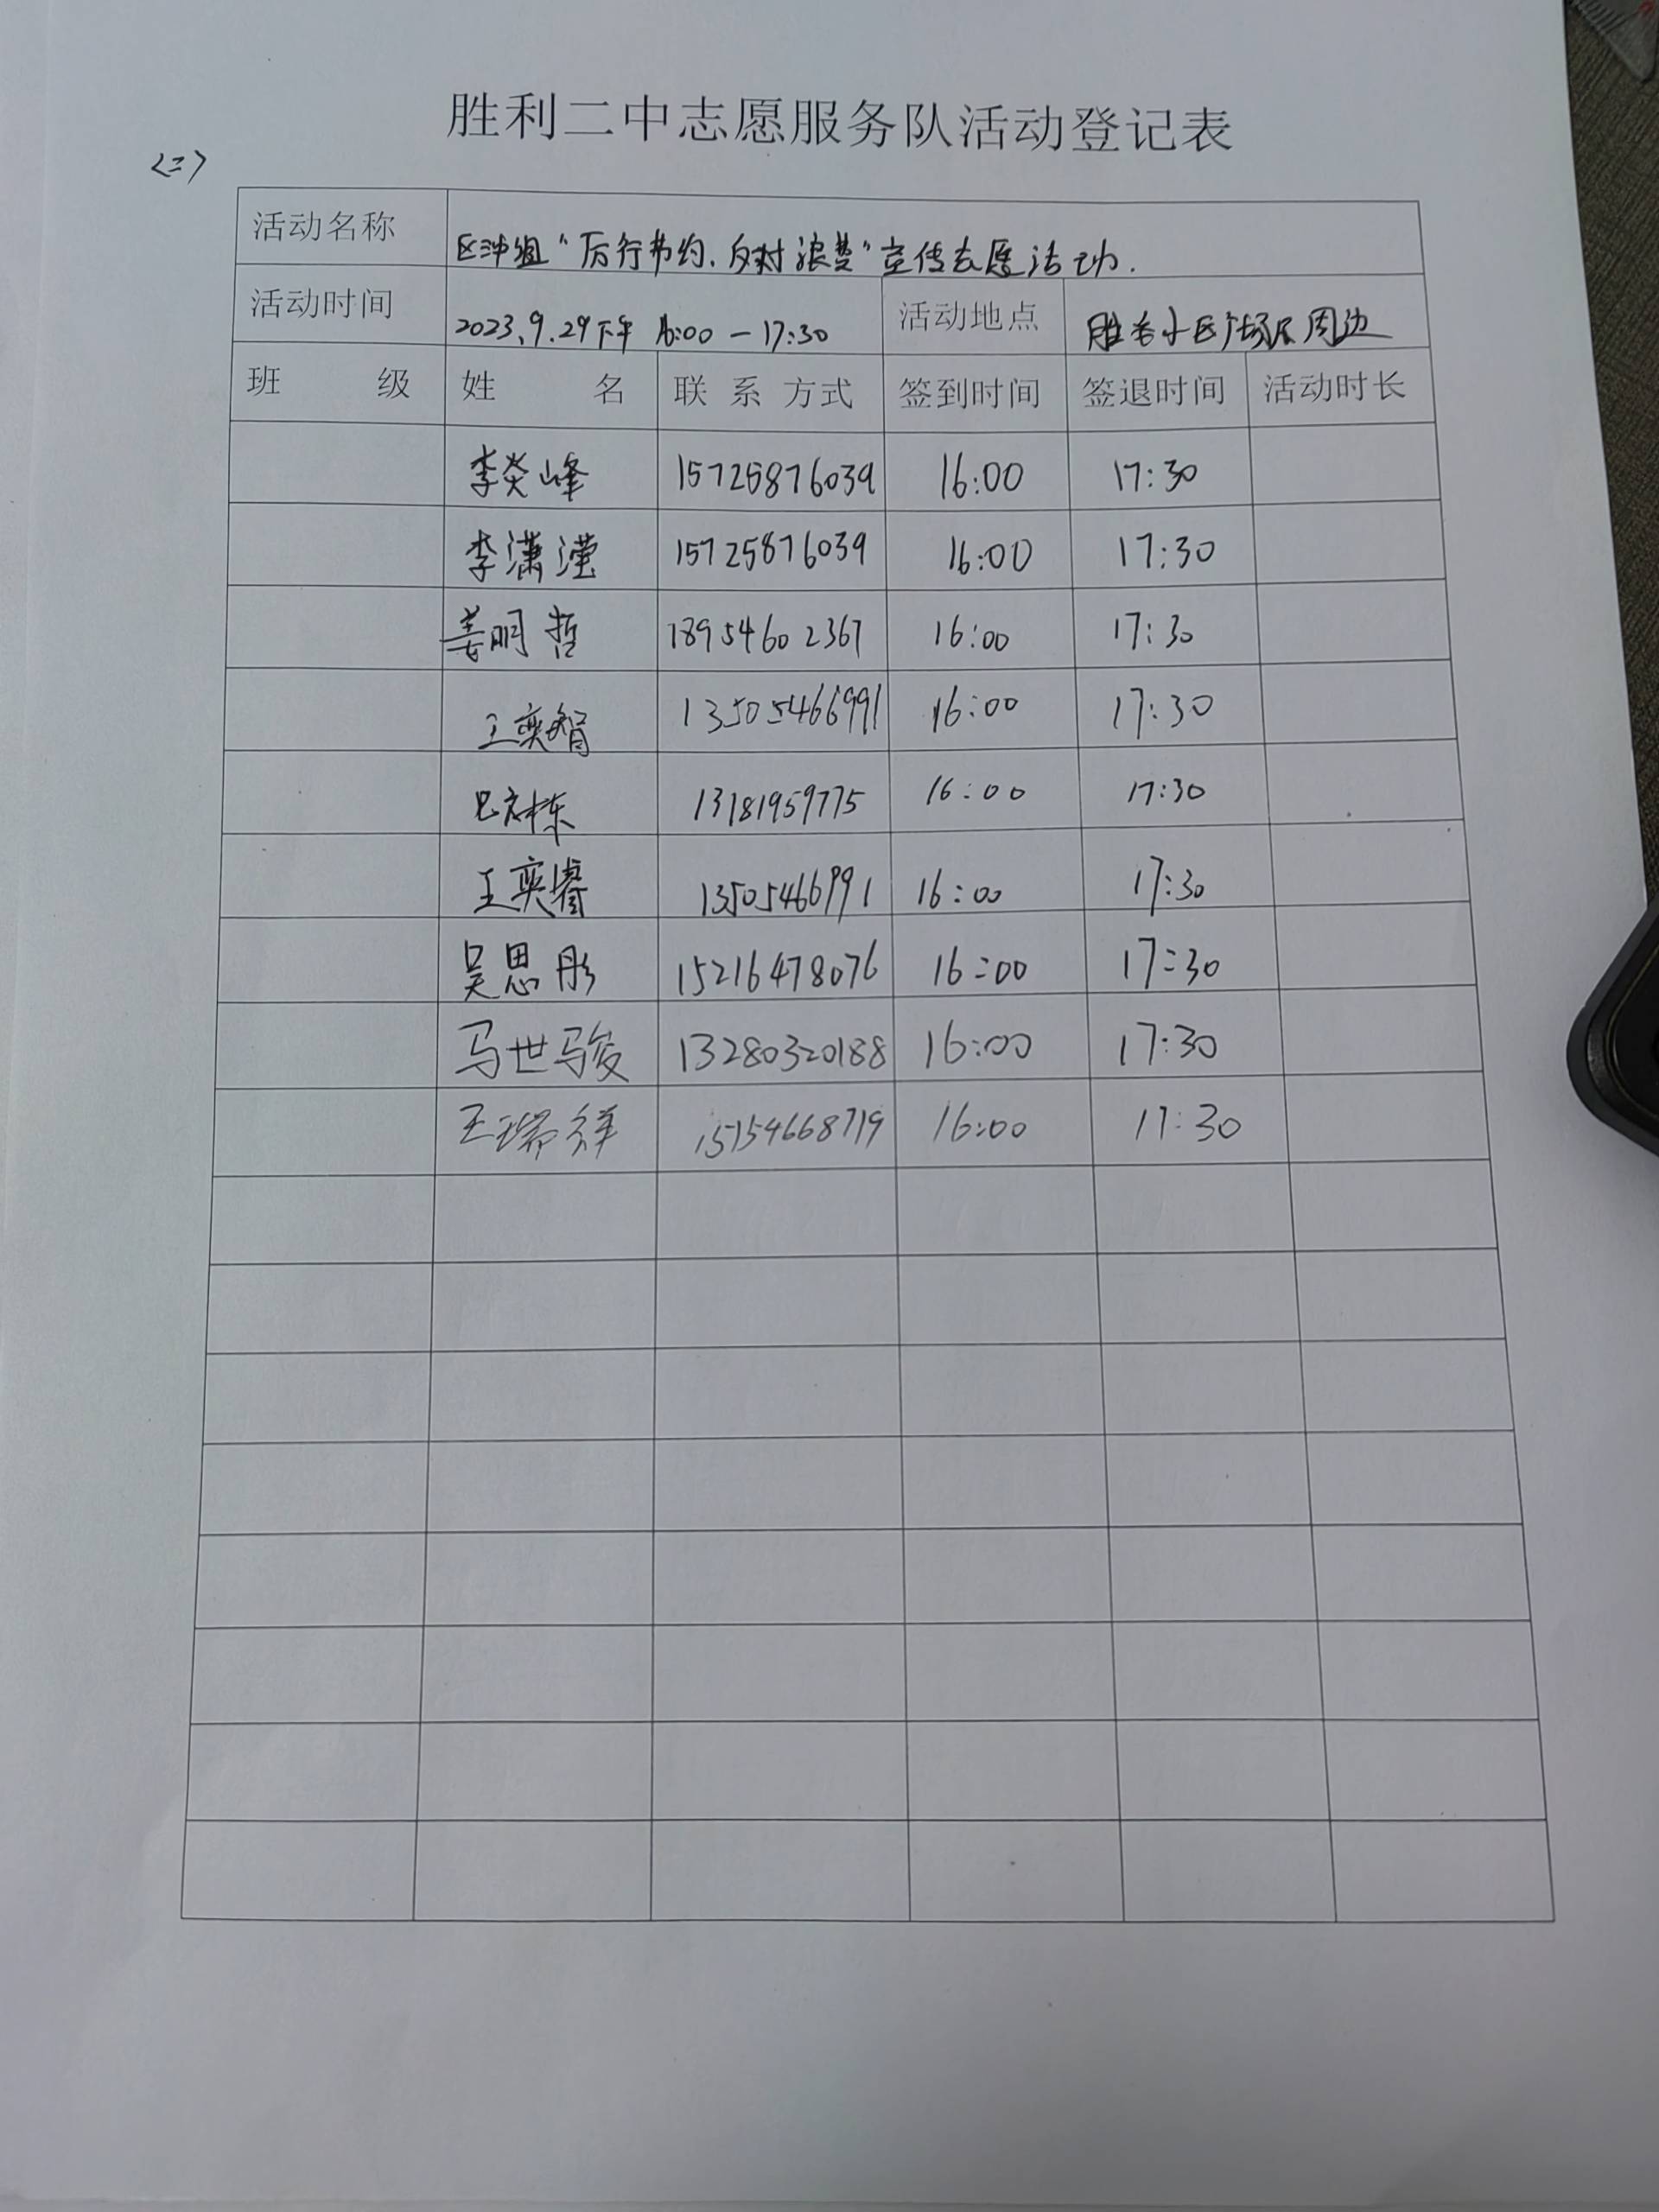 胜利二中志愿服务队活动登记表
<二>
活动名称 "厉行节约、反对浪费"宣传志愿活动.
活动时间 2023.9.29下午 16:00-17:30 活动地点 周边
班 级 姓 名 联系方式 签到时间 签退时间 活动时长
李炎峰 15725876039 16:00 17:30
李潇滢 15725876039 16:00 17:30
姜明哲 18954602367 16:00 17:30
王奕智 13505466991 16:00 17:30
13181959775 16:00 17:30
王奕睿 13505466991 16:00 17:30
吴思彤 15216478076 16:00 17:30
马世骏 13280320188 16:00 17:30
王瑞祥 15154668719 16:00 17:30